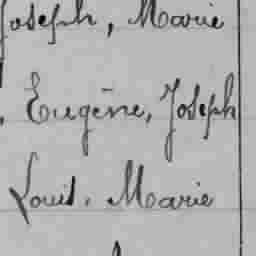 Joseph, Marie
Eugène, Joseph
Louis, Marie